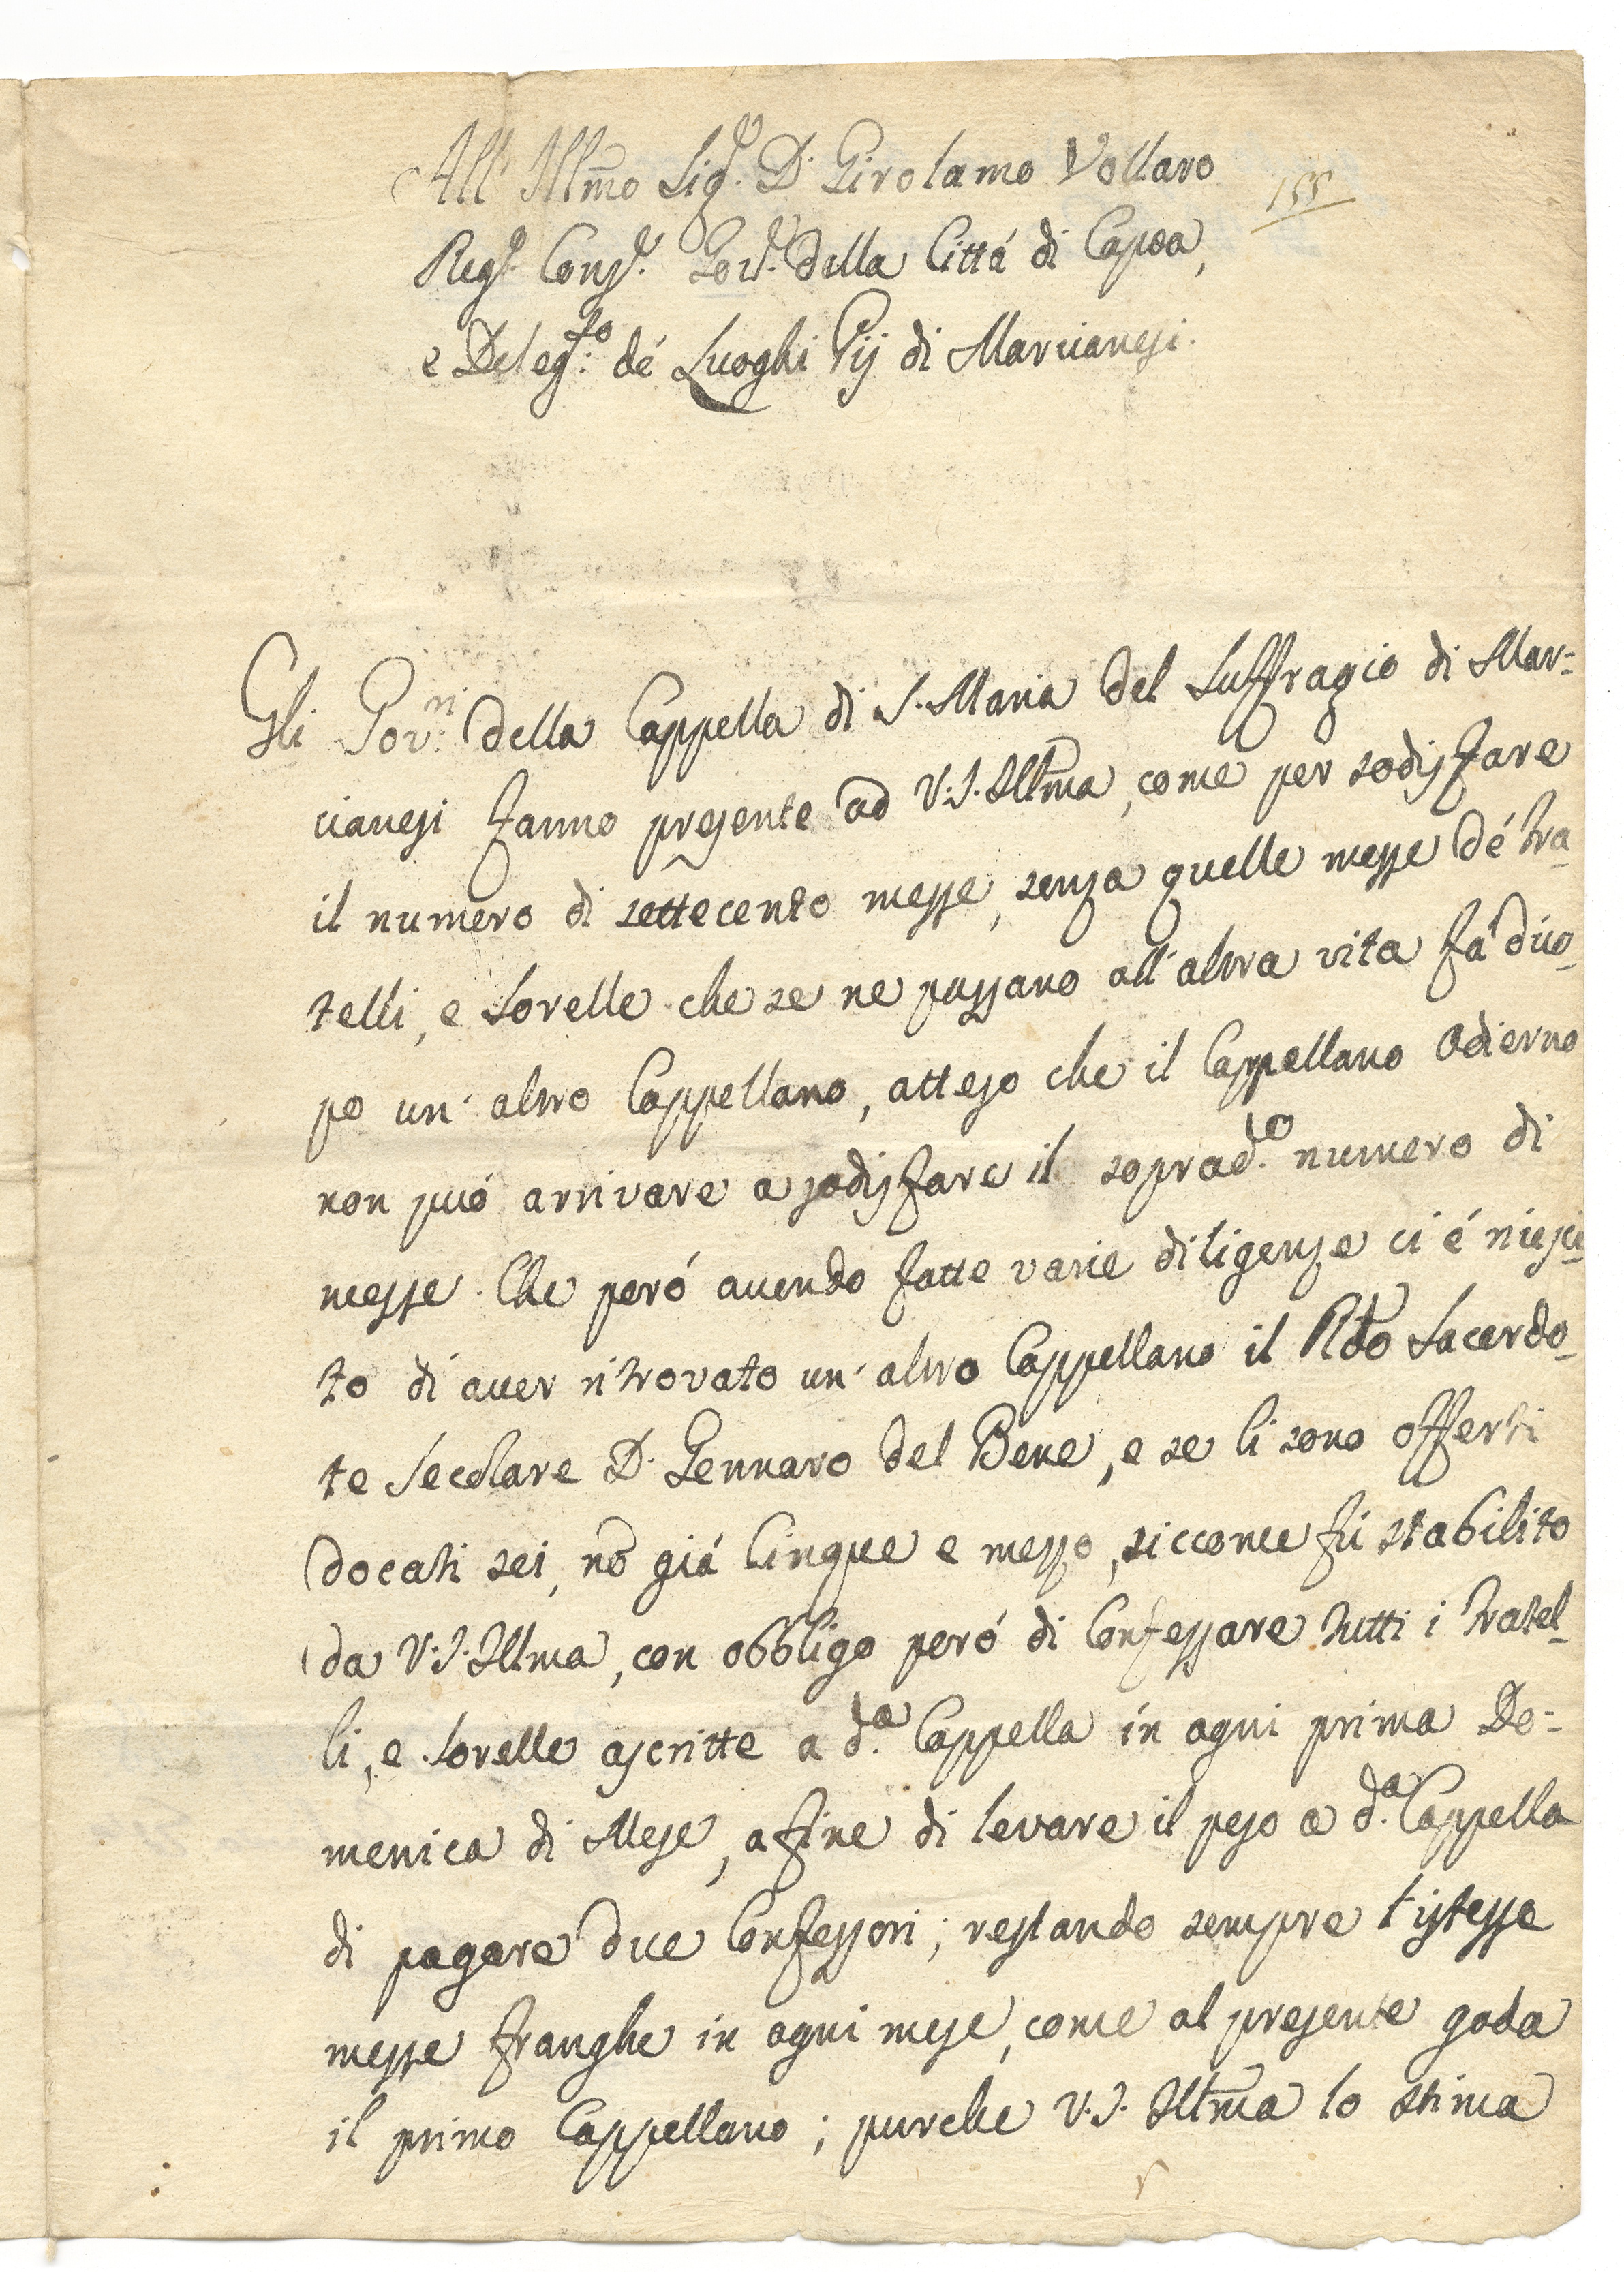 All' Illmo Sigr. D. Girolamo Vollaro
155
Rego. Consr. Govr. della Cittá di Capoa,
e Delegto: dé Luoghi Pij di Marcianesi.
Gli Govri. della Cappella di S. Maria del Suffragio di Mar=
cianesi fanno presente ad V.S. Illma, come per sodisfare
il numero di settecento messe, senza quelle messe dé Fra-
telli, e Sorelle che se ne passano all'altra vita fá d'uo-
po un' altro Cappellano, atteso che il Cappellano odierno
non puó arrivare a sodisfare il soprado. numero di
messe. Che peró avendo fatte varie diligenze ci é riusci-
to di aver ritrovato un' altro Cappellano il Rdo Sacerdo-
te Secolare D. Gennaro del Bene, e se li sono offerti
docati sei, nō giá Cinque e mezzo, siccome fú stabilito
da V.S. Illma, con obbligo peró di Confessare tutti i Fratel-
li, e Sorelle ascritte a da. Cappella in ogni prima Do=
menica di Mese, a fine di levare il peso a da. Cappella
di pagare due Confessori; restando sempre l'istesse
messe franghe in ogni mese, come al presente goda
il primo Cappellano; purche V.S. Illma lo stima